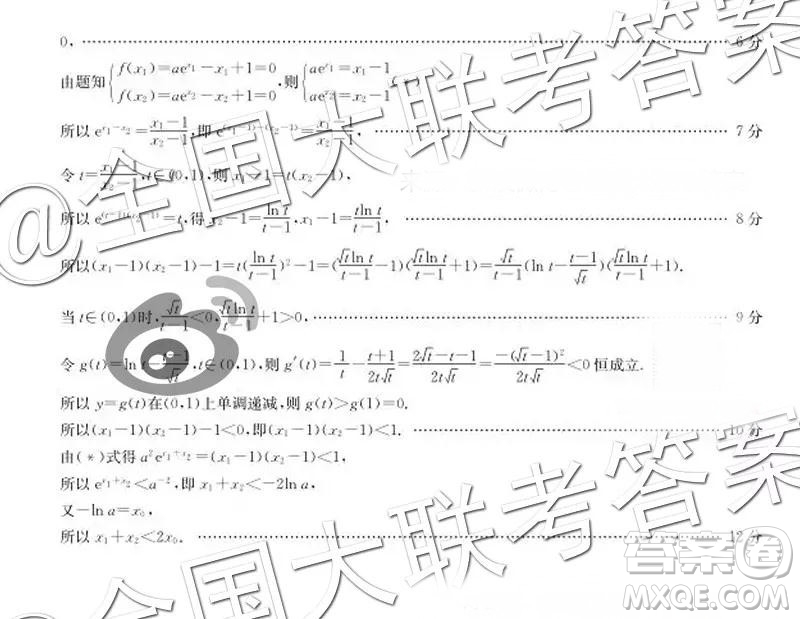 0, …… 6 分
由题知{f(x₁)=ae^{x₁}-x₁+1=0, f(x₂)=ae^{x₂}-x₂+1=0, 则{ae^{x₁}=x₁-1, ae^{x₂}=x₂-1
所以 e^{x₁-x₂}=\frac{x₁-1}{x₂-1},即 e^{(x₁-1)-(x₂-1)}=\frac{x₁-1}{x₂-1}, …… 7 分
令 t=\frac{x₁-1}{x₂-1},t∈(0,1),则 x₁-1=t(x₂-1),
所以 e^{(t-1)(x₂-1)}=t,得 x₂-1=\frac{ln t}{t-1},x₁-1=\frac{tln t}{t-1}, …… 8 分
所以(x₁-1)(x₂-1)-1=t(\frac{ln t}{t-1})²-1=(\frac{√t ln t}{t-1}-1)(\frac{√t ln t}{t-1}+1)=\frac{√t}{t-1}(ln t-\frac{t-1}{√t})(\frac{√t ln t}{t-1}+1).
当 t∈(0,1)时,\frac{√t}{t-1}<0,\frac{√t ln t}{t-1}+1>0, …… 9 分
令 g(t)=ln t-\frac{t-1}{√t},t∈(0,1),则 g′(t)=\frac{1}{t}-\frac{t+1}{2t√t}=\frac{2√t-t-1}{2t√t}=\frac{-(√t-1)²}{2t√t}<0 恒成立.
所以 y=g(t)在(0,1)上单调递减,则 g(t)>g(1)=0.
所以(x₁-1)(x₂-1)-1<0,即(x₁-1)(x₂-1)<1. …… 10 分
由(*)式得 a²e^{x₁+x₂}=(x₁-1)(x₂-1)<1,
所以 e^{x₁+x₂}<a⁻²,即 x₁+x₂<-2ln a,
又-ln a=x₀,
所以 x₁+x₂<2x₀。 …… 12 分
@全国大联考答案
全国大联考答案
答案卷
MXQE.COM